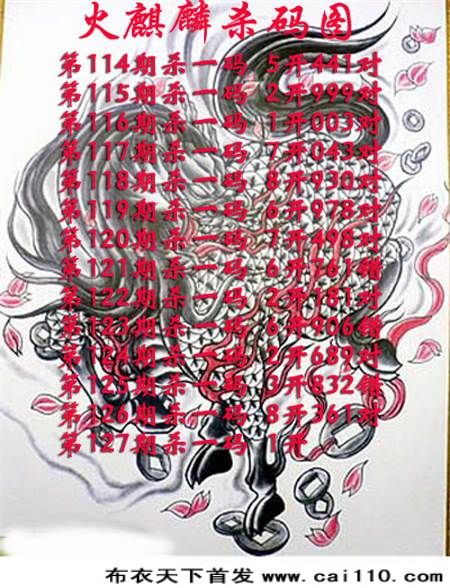 火麒麟杀码图
第114期杀一码 5开441对
第115期杀一码 2开999对
第116期杀一码 1开003对
第117期杀一码 7开043对
第118期杀一码 8开930对
第119期杀一码 6开978对
第120期杀一码 7开498对
第121期杀一码 6开761错
第122期杀一码 2开181对
第123期杀一码 6开906错
第124期杀一码 2开689对
第125期杀一码 3开832错
第126期杀一码 8开361对
第127期杀一码 1开
布衣天下首发 www.cai110.com